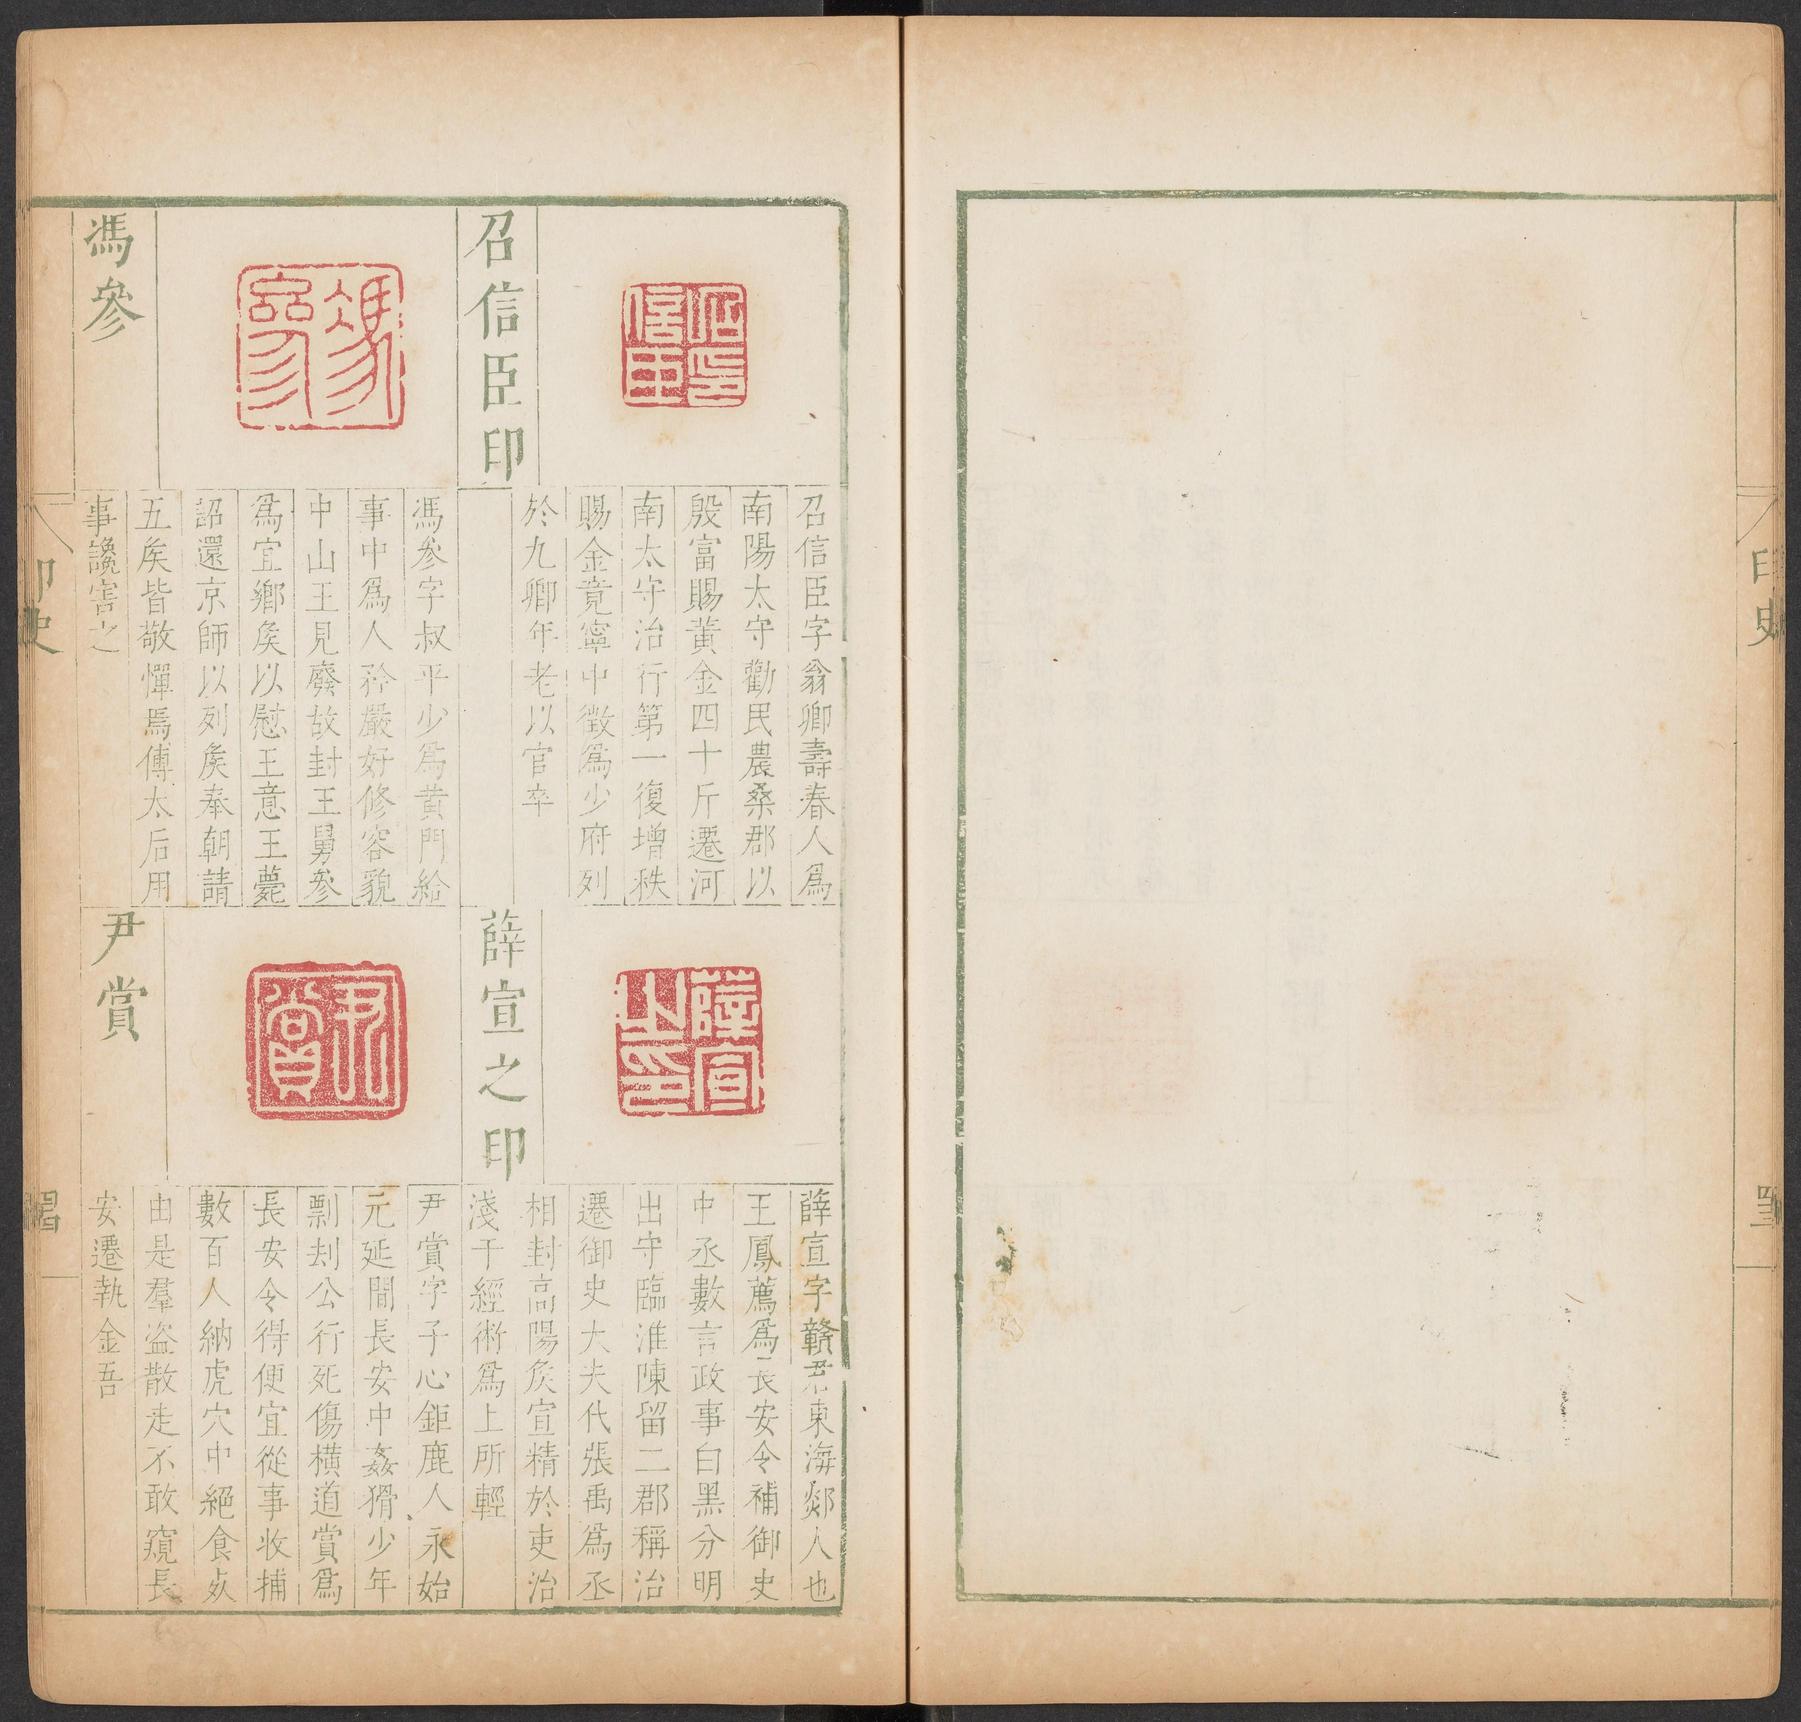 印史
召信臣印
召信臣字翁卿壽春人爲
南陽太守勸民農桑郡以
殷富賜黃金四十斤遷河
南太守治行第一復增秩
賜金竟寧中徵爲少府列
於九卿年老以官卒
馮參
馮參字叔平少爲黃門給
事中爲人矜嚴好修容貌
中山王見廢故封王舅參
爲宜鄉矦以慰王意王薨
詔還京師以列矦奉朝請
五矦皆敬憚焉傅太后用
事讒害之
薛宣之印
薛宣字贛君東海郯人也
王鳳薦爲長安令補御史
中丞數言政事白黑分明
出守臨淮陳留二郡稱治
遷御史大夫代張禹爲丞
相封高陽矦宣精於吏治
淺于經術爲上所輕
尹賞
尹賞字子心鉅鹿人永始
元延間長安中姦猾少年
剽刦公行死傷橫道賞爲
長安令得便宜從事收捕
數百人納虎穴中絕食死
由是羣盜散走不敢窺長
安遷執金吾
印史